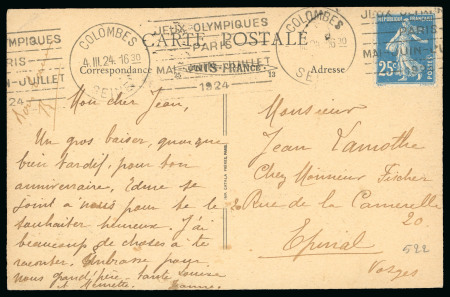 COLOMBES
4 III.24. 16 30
SEINE
JEUX OLYMPIQUES
PARIS
MAI-JUIN-JUILLET
1924
COLOMBES
JEUX OLYMPIQUES
PARIS
MAI-JUIN-JUILLET
CARTE POSTALE
PARIS-FRANCE
Correspondance
Adresse
25c
POSTES
Mon cher Jean,
Un gros baiser, quoique
bien tardif, pour ton
anniversaire. Edme se
joint à nous pour te le
souhaiter heureux. J'ai
beaucoup de choses à te
raconter. Embrasse pour
nous grand'père. tante Louise
et Minette.
Monsieur
Jean Lamothe
Chez Monsieur Fischer
20 Rue de la
20
Epinal
Vosges
522